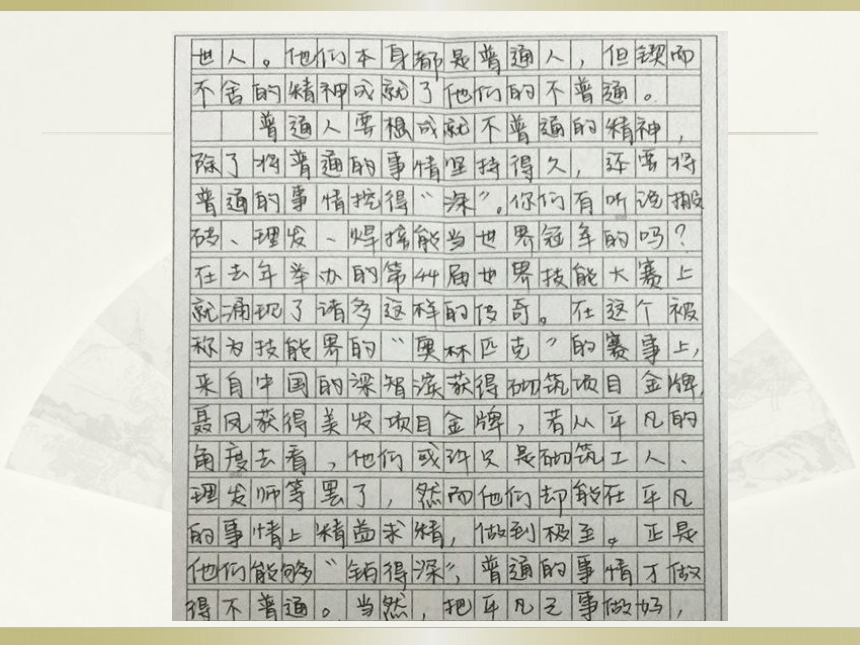 世人。他们本身都是普通人，但锲而
不舍的精神成就了他们的不普通。
普通人要想成就不普通的精神，
除了将普通的事情坚持得久，还要将
普通的事情挖得“深”。你们有听说搬
砖、理发、焊接能当世界冠军的吗？
在去年举办的第44届世界技能大赛上
就涌现了诸多这样的传奇。在这个被
称为技能界的“奥林匹克”的赛事上，
来自中国的梁智滨获得砌筑项目金牌，
聂凤获得美发项目金牌，若从平凡的
角度去看，他们或许只是砌筑工人、
理发师等罢了，然而他们却能在平凡
的事情上精益求精，做到极至。正是
他们能够“钻得深”，普通的事情才做
得不普通。当然，把平凡之事做好，